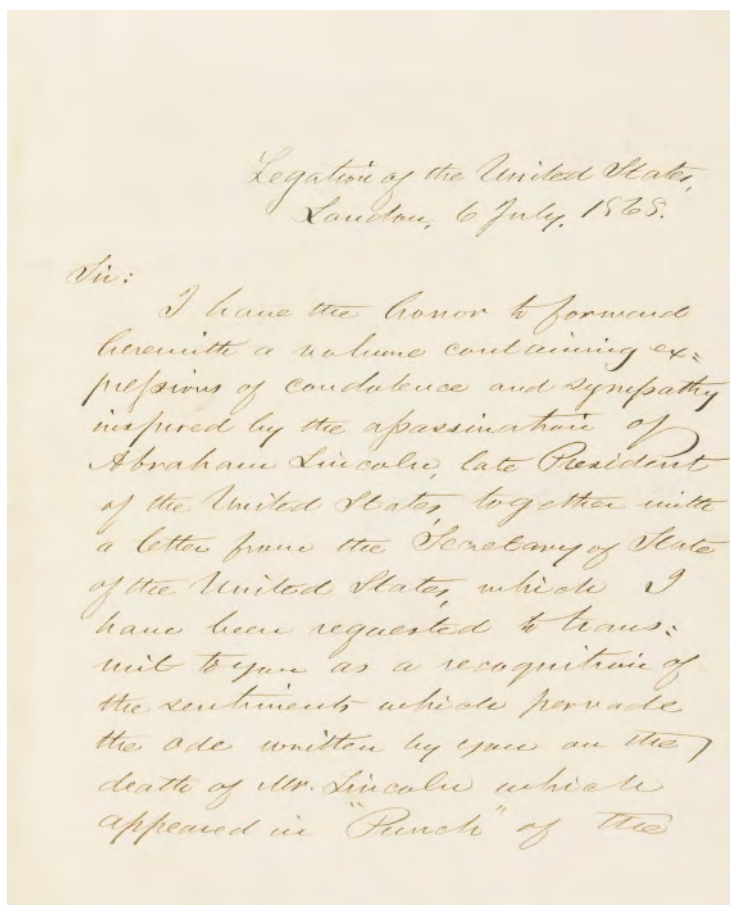 Legation of the United States,
London, 6 July, 1868.
Sir:
I have the honor to forward
herewith a volume containing ex=
pressions of condolence and sympathy
inspired by the assassination of
Abraham Lincoln, late President
of the United States, together with
a letter from the Secretary of State
of the United States, which I
have been requested to trans=
mit to you as a recognition of
the sentiments which pervade
the Ode written by you on the
death of Mr. Lincoln which
appeared in "Punch" of the